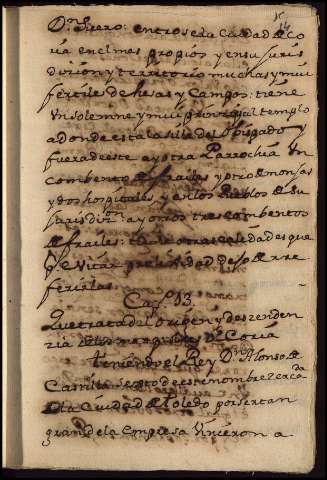 15
14
Dn. suero: entrose la Ciudad de Co
ria en el mas propios y en su juris
dicion y territorio muchas y mui
fertiles dehesas y Campos: tiene
Un solemne y mui prinsipal templo
adonde esta la silla del Obispado y
fuera de este ay otra Parrochia Un
combento de frailes y otro de monjas
y dos hospitales y en los Pueblos de su
jurisdizn. ay otros tres combentos
de frailes: tiene otras calidades que
por evitar prolixidad dejo de rre
ferirlas.
Cap. 13.
Que trata del origen y deszenden
zia de los marqueses de Coria
teniendo el Rey Dn. Alonso de
Castilla sexto de este nombre zercada
a la Ciudad de Toledo por ser tan
grande la empresa Vinieron a